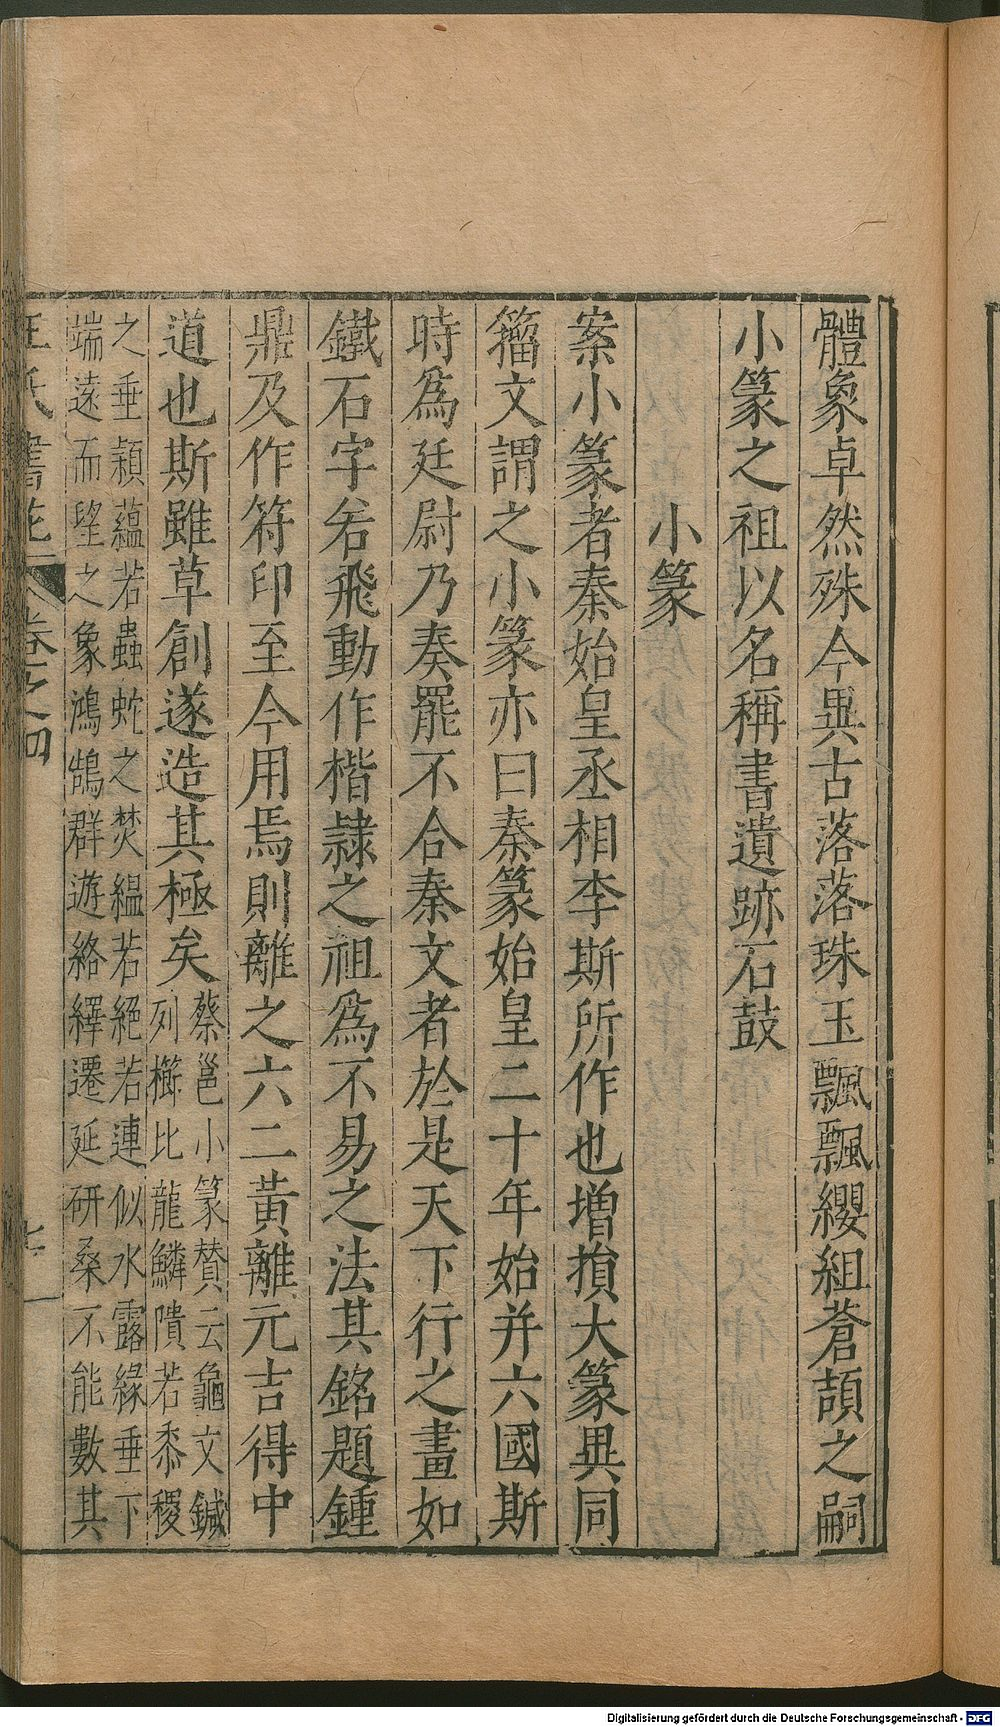 體象卓然殊今異古落落珠玉飄飄纓組蒼頡之嗣
小篆之祖以名稱書遺跡石鼓
小篆
案小篆者秦始皇丞相李斯所作也增損大篆異同
籀文謂之小篆亦曰秦篆始皇二十年始并六國斯
時爲廷尉乃奏罷不合秦文者於是天下行之畫如
鐵石字若飛動作楷隸之祖爲不易之法其銘題鍾
鼎及作符印至今用焉則離之六二黃離元吉得中
道也斯雖草創遂造其極矣
蔡邕小篆賛云龜文鍼
列櫛比龍鱗隤若黍稷
之垂穎蘊若蟲蛇之焚緼若絕若連似水露緣垂下
端遠而望之象鴻鵠群遊絡繹遷延研桑不能數其
王氏書苑
卷之四
七
Digitalisierung gefördert durch die Deutsche Forschungsgemeinschaft - DFG